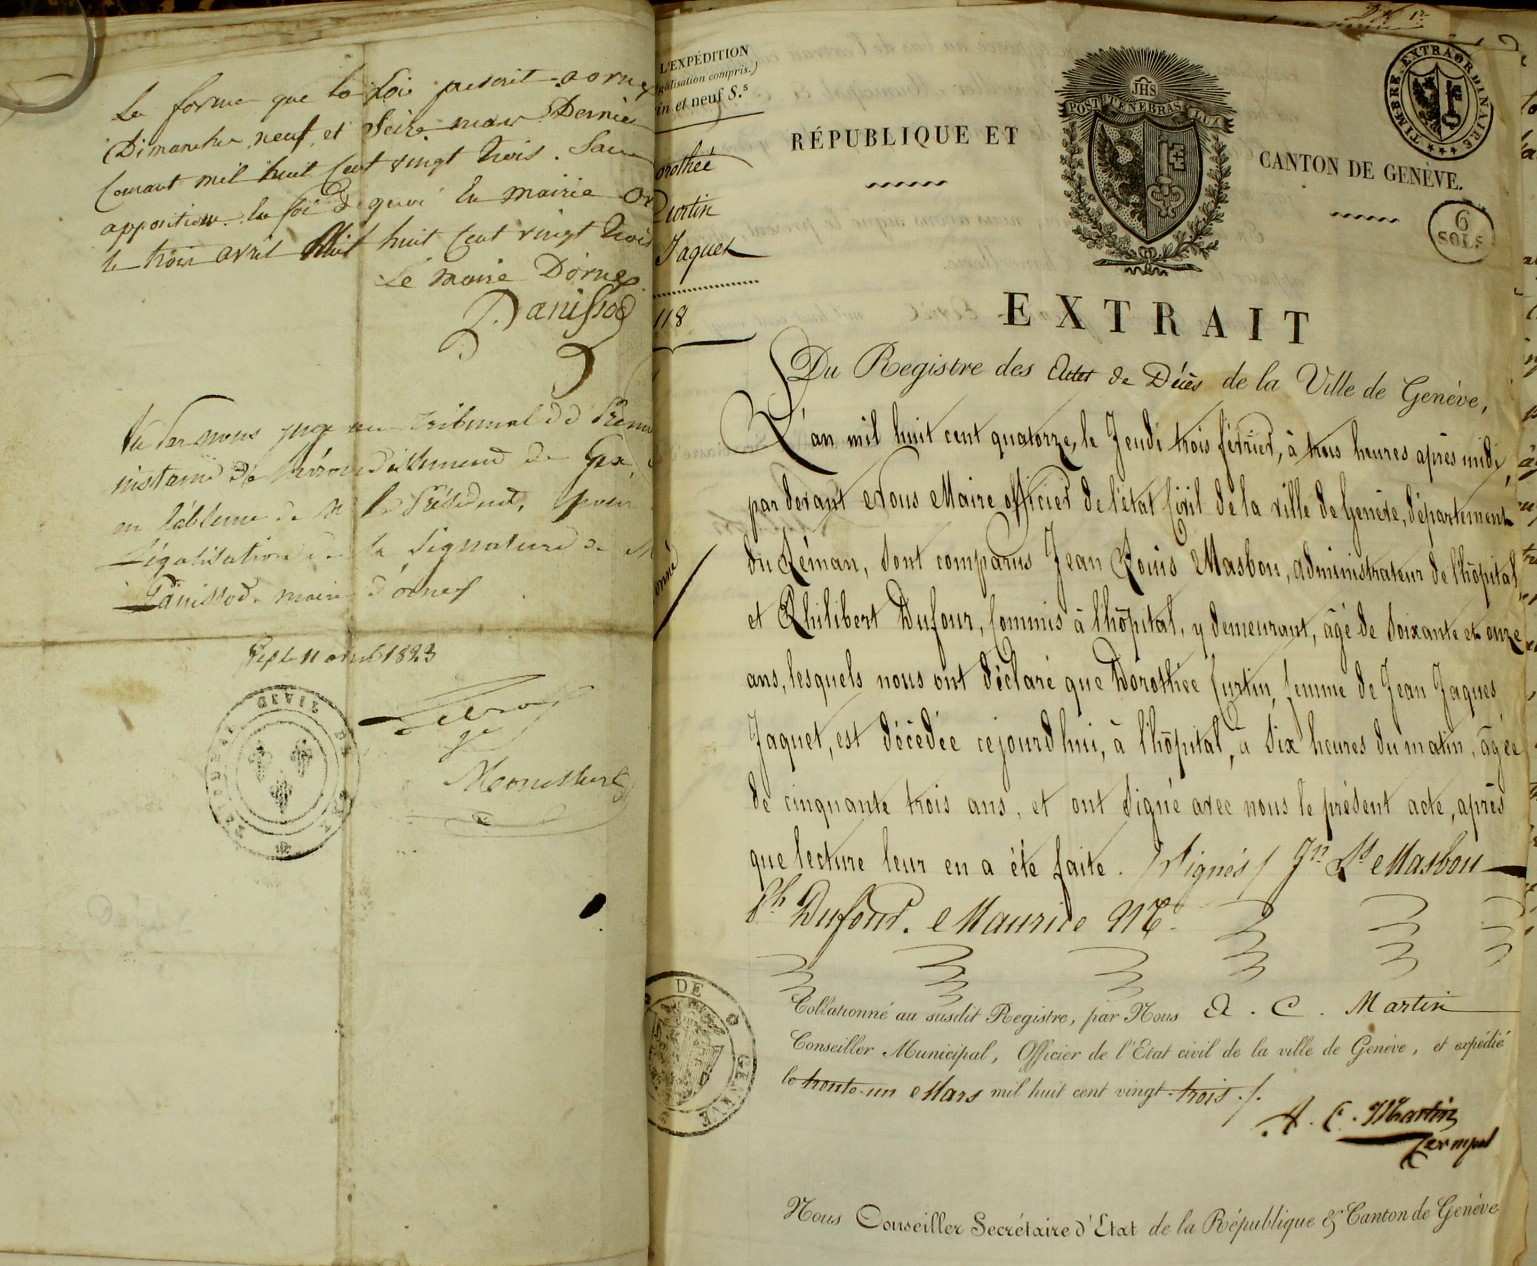 La forme que la Loi prescrit a ornex
Dimanche neuf et Seize mars Dernier
Courant mil huit Cent vingt trois. Sans
apposition. En foi de quoi En mairie
le trois avril Mil huit Cent vingt trois
Le maire D'ornex
Panissod
Vu Par nous juge au Tribunal de Premi
instance de l'arrondissement de Gex,
en l'absence de Mr le Président, pour
Légalisation de la Signature de M
Panissod maire d'ornex
Gex le 11 avril 1823
TRIBUNAL CIVIL DE GEX
L'EXPÉDITION
(légalisation compris.)
un et neuf S.s
orothée
Curtin
Jaquet
118
DE GENÈVE
RÉPUBLIQUE ET
JHS
POST TENEBRAS LUX
CANTON DE GENÈVE.
TIMBRE EXTRAORDINAIRE
6
SOLS
EXTRAIT
Du Registre des Actes de Décès de la Ville de Genève,
L'an mil huit cent quatorze, le Jeudi trois février, à trois heures après midi,
par devant Nous Maire officier de l'état Civil de la ville de Genève, département
du Léman, sont comparus Jean Louis Masbou, administrateur de l'hôpital,
et Philibert Dufour, Commis à l'hôpital, y demeurant, âgé de soixante et onze
ans, lesquels nous ont déclaré que Dorothée Curtin, femme de Jean Jaques
Jaquet, est décédée cejourd'hui, à l'hôpital, à six heures du matin, âgée
de cinquante trois ans, et ont signé avec nous le présent acte, après
que lecture leur en a été faite. /Signés/ Jn Ls Masbou
Ph Dufour. Maurice Me.
Collationné au susdit Registre, par Nous A. C. Martin
Conseiller Municipal, Officier de l'Etat civil de la ville de Genève, et expédié
le trente-un Mars mil huit cent vingt-trois./.
A. C. Martin
Nous Conseiller Secrétaire d'Etat de la République & Canton de Genève